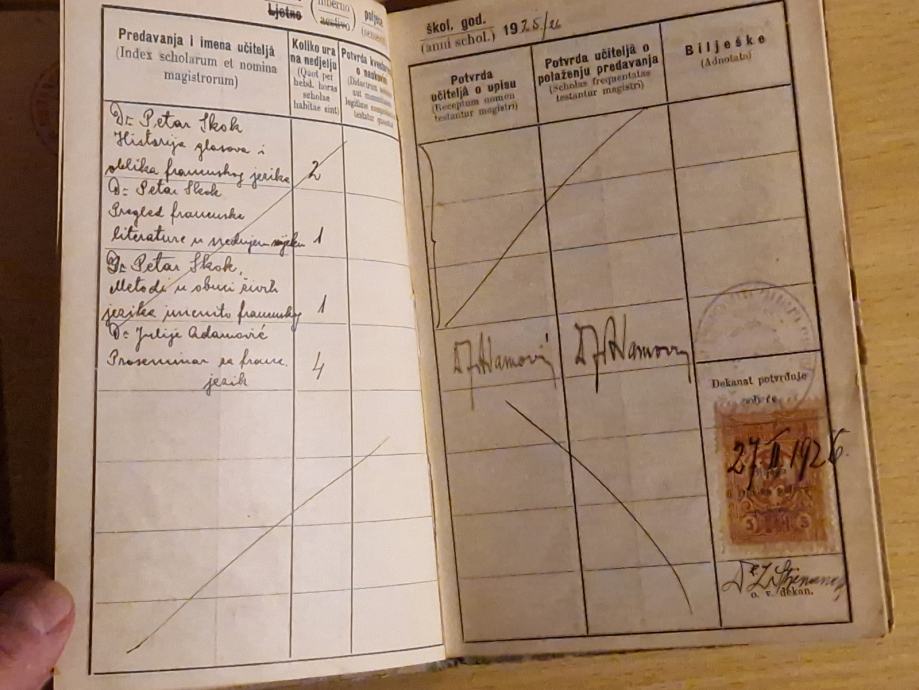 Ljetno
poljeće
Predavanja i imena učiteljâ
(Index scholarum et nomina
magistrorum)
Koliko ura
na nedjelju
(Quot per
hebd. horas
scholae
habitae sint)
Potvrda
o
Dr Petar Skok
Historija glasova i
oblika francuskog jezika
2
Dr Petar Skok
Pregled francuske
literature u srednjem vijeku
1
Dr Petar Skok,
Metodi u obuci živih
jezika imenito francuskog
1
Dr Julije Adamović
Proseminar za franc.
jezik
4
škol. god.
(anni schol.) 1925/26
Potvrda
učiteljâ o upisu
(Receptum nomen
testantur magistri)
Potvrda učiteljâ o
polaženju predavanja
(Scholas frequentatas
testantur magistri)
Bilješke
(Adnotata)
Dr J Adamović
Dr J Adamović
Dekanat potvrđuje
27 II 1926.
5 5
o. v. dekan.